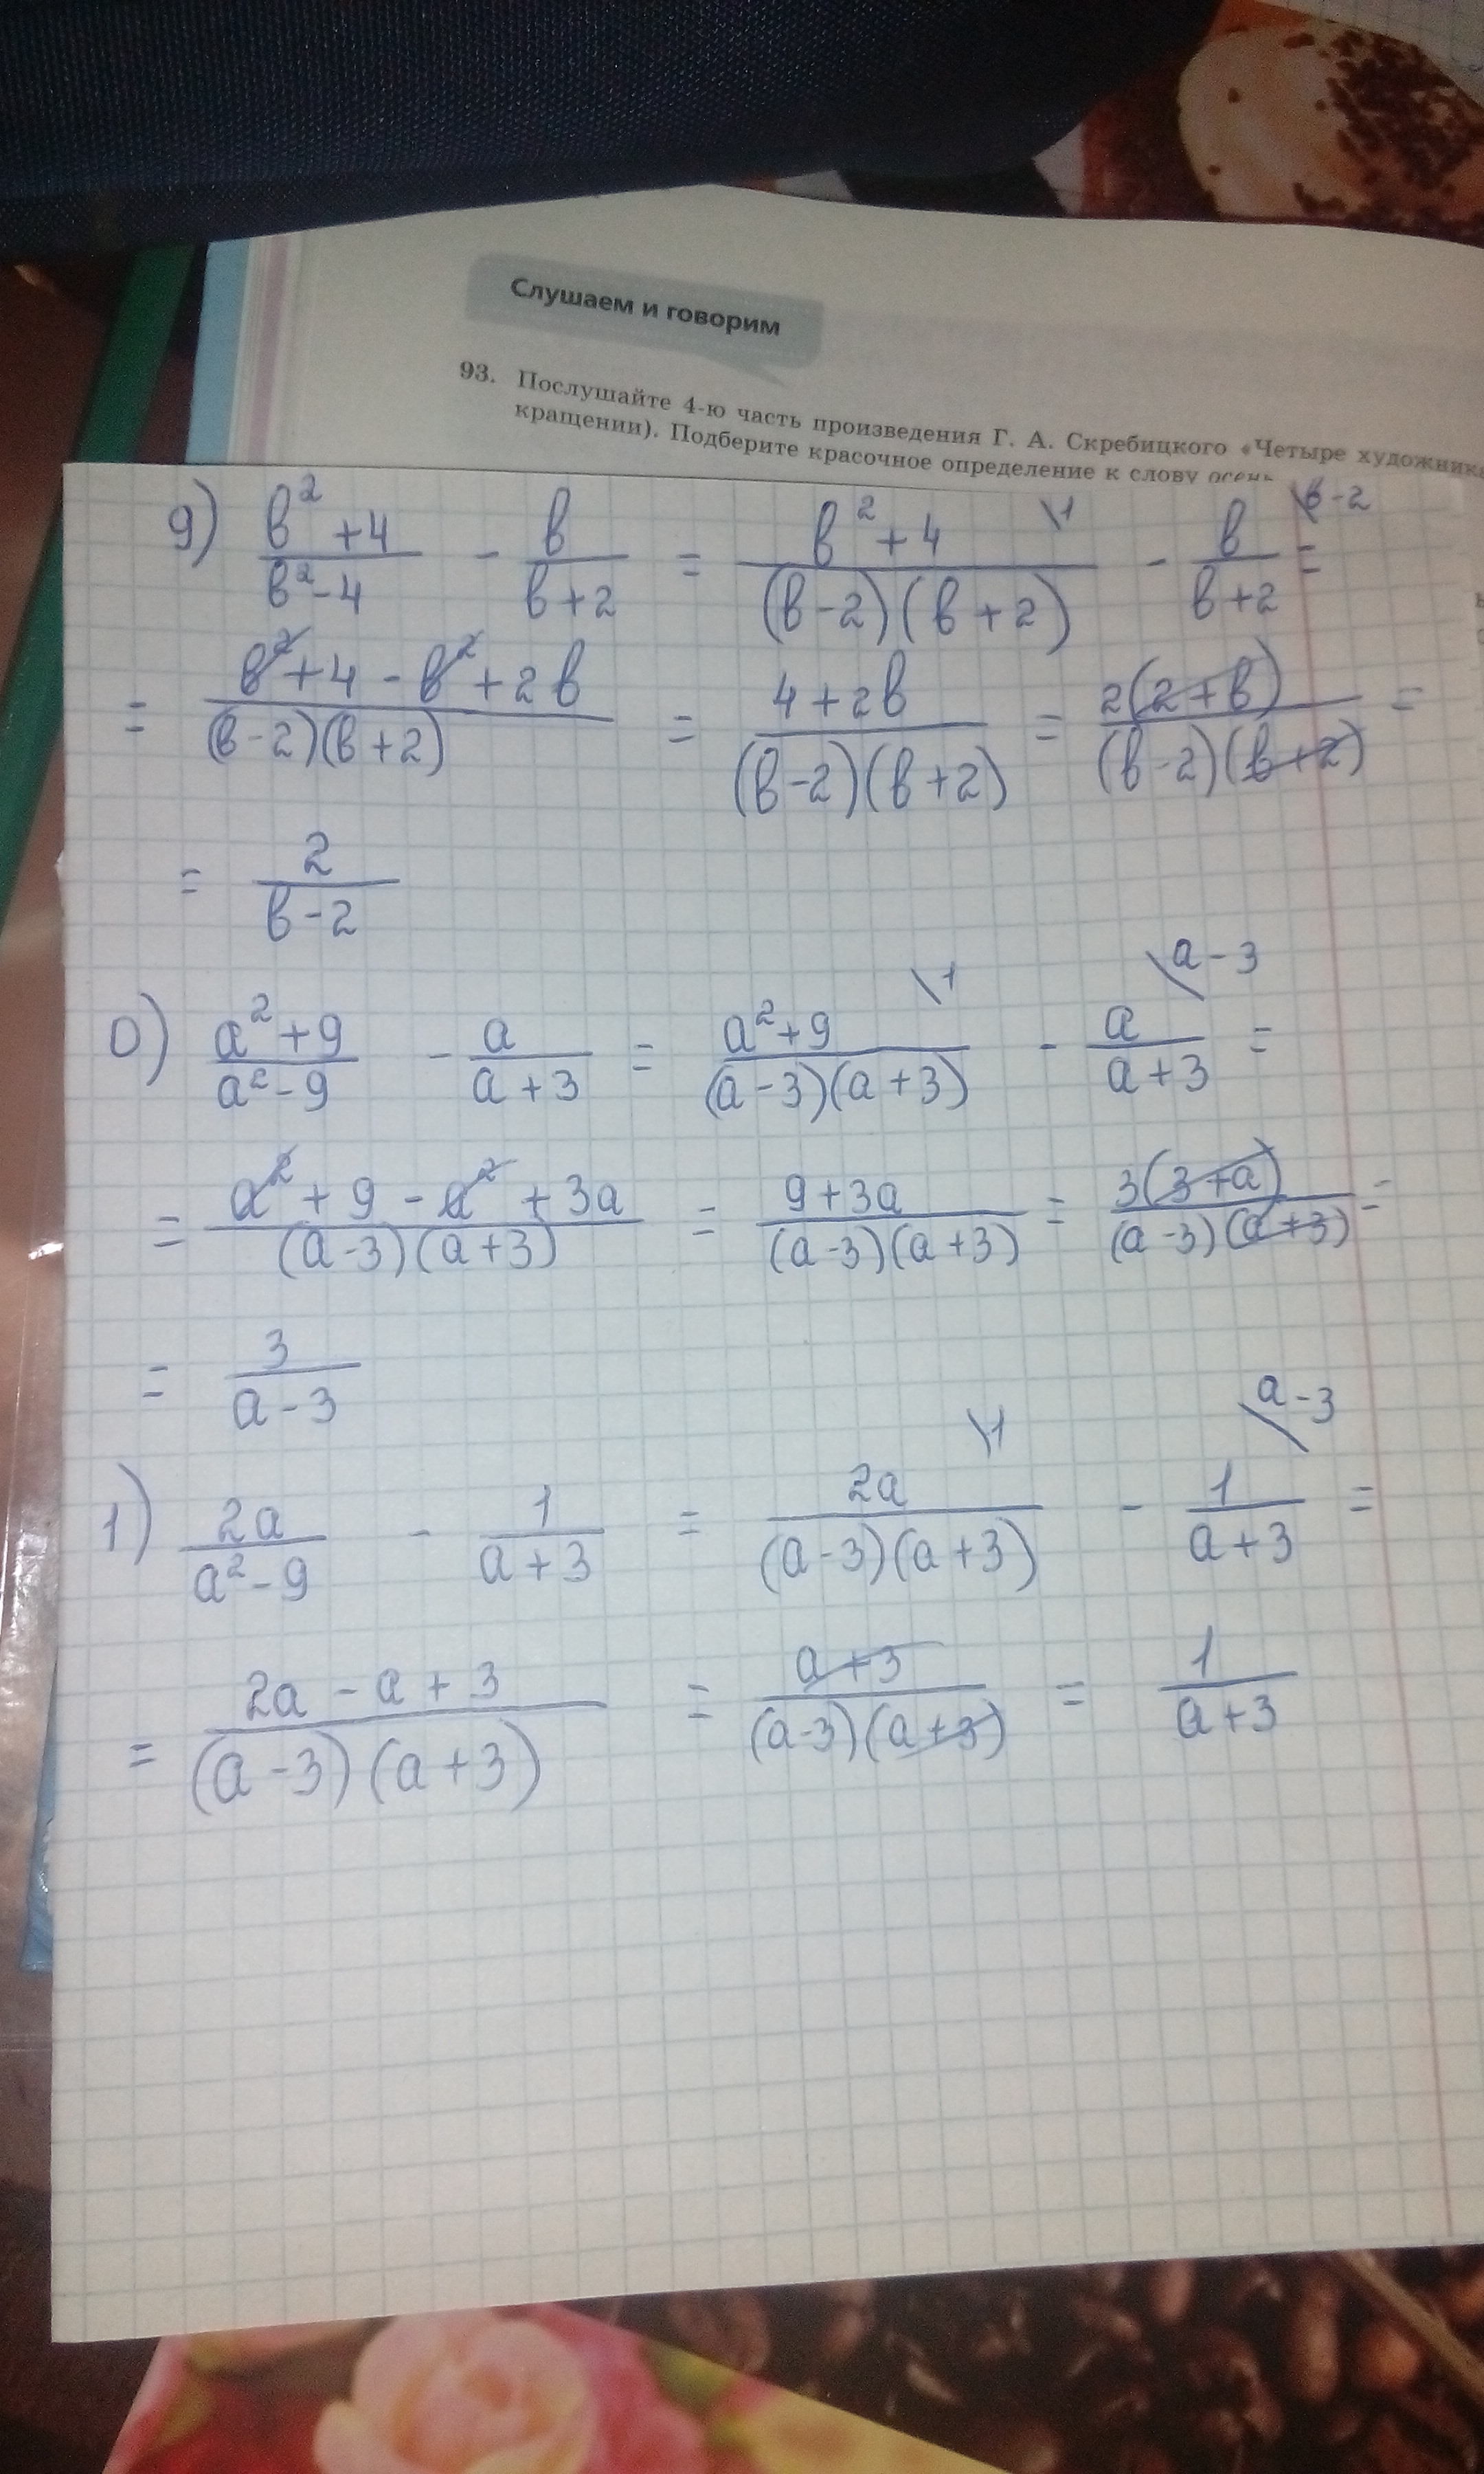 Слушаем и говорим
93. Послушайте 4-ю часть произведения Г. А. Скребицкого «Четыре художника
кращении). Подберите красочное определение к слову осень
9) (в²+4)/(в²-4) - в/(в+2) = (в²+4)/((в-2)(в+2)) \1 - в/(в+2) \в-2 =
= (в²+4-в²+2в)/((в-2)(в+2)) = (4+2в)/((в-2)(в+2)) = 2(2+в)/((в-2)(в+2)) =
= 2/(в-2)
0) (a²+9)/(a²-9) - a/(a+3) = (a²+9)/((a-3)(a+3)) \1 - a/(a+3) \a-3 =
= (a²+9-a²+3a)/((a-3)(a+3)) = (9+3a)/((a-3)(a+3)) = 3(3+a)/((a-3)(a+3)) =
= 3/(a-3)
1) 2a/(a²-9) - 1/(a+3) = 2a/((a-3)(a+3)) \1 - 1/(a+3) \a-3 =
= (2a-a+3)/((a-3)(a+3)) = (a+3)/((a-3)(a+3)) = 1/(a+3)